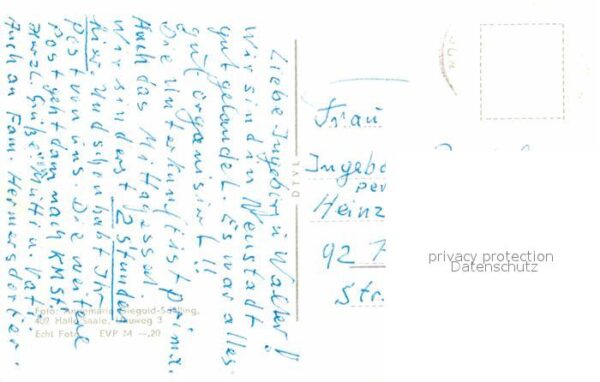 Liebe Ingeborg u. Walter!
Wir sind in Neustadt
gut gelandet. Es war alles
gut organisiert!!
Die Unterkunft ist prima.
Auch das Mittagessen.
Wir sind erst 2 Stunden
hier. Und schon habt Ihr
Post von uns. Die weitere
Post geht dann nach KMSt.
Herzl. Grüße Mutti u. Vati
Auch an Fam. Hermersdorfer.
DTVL
Frau
Ingebo
per
Heinz
92
Str.
privacy protection
Datenschutz
Foto:
402 Halle/Saale,
Echt Foto EVP M —,20